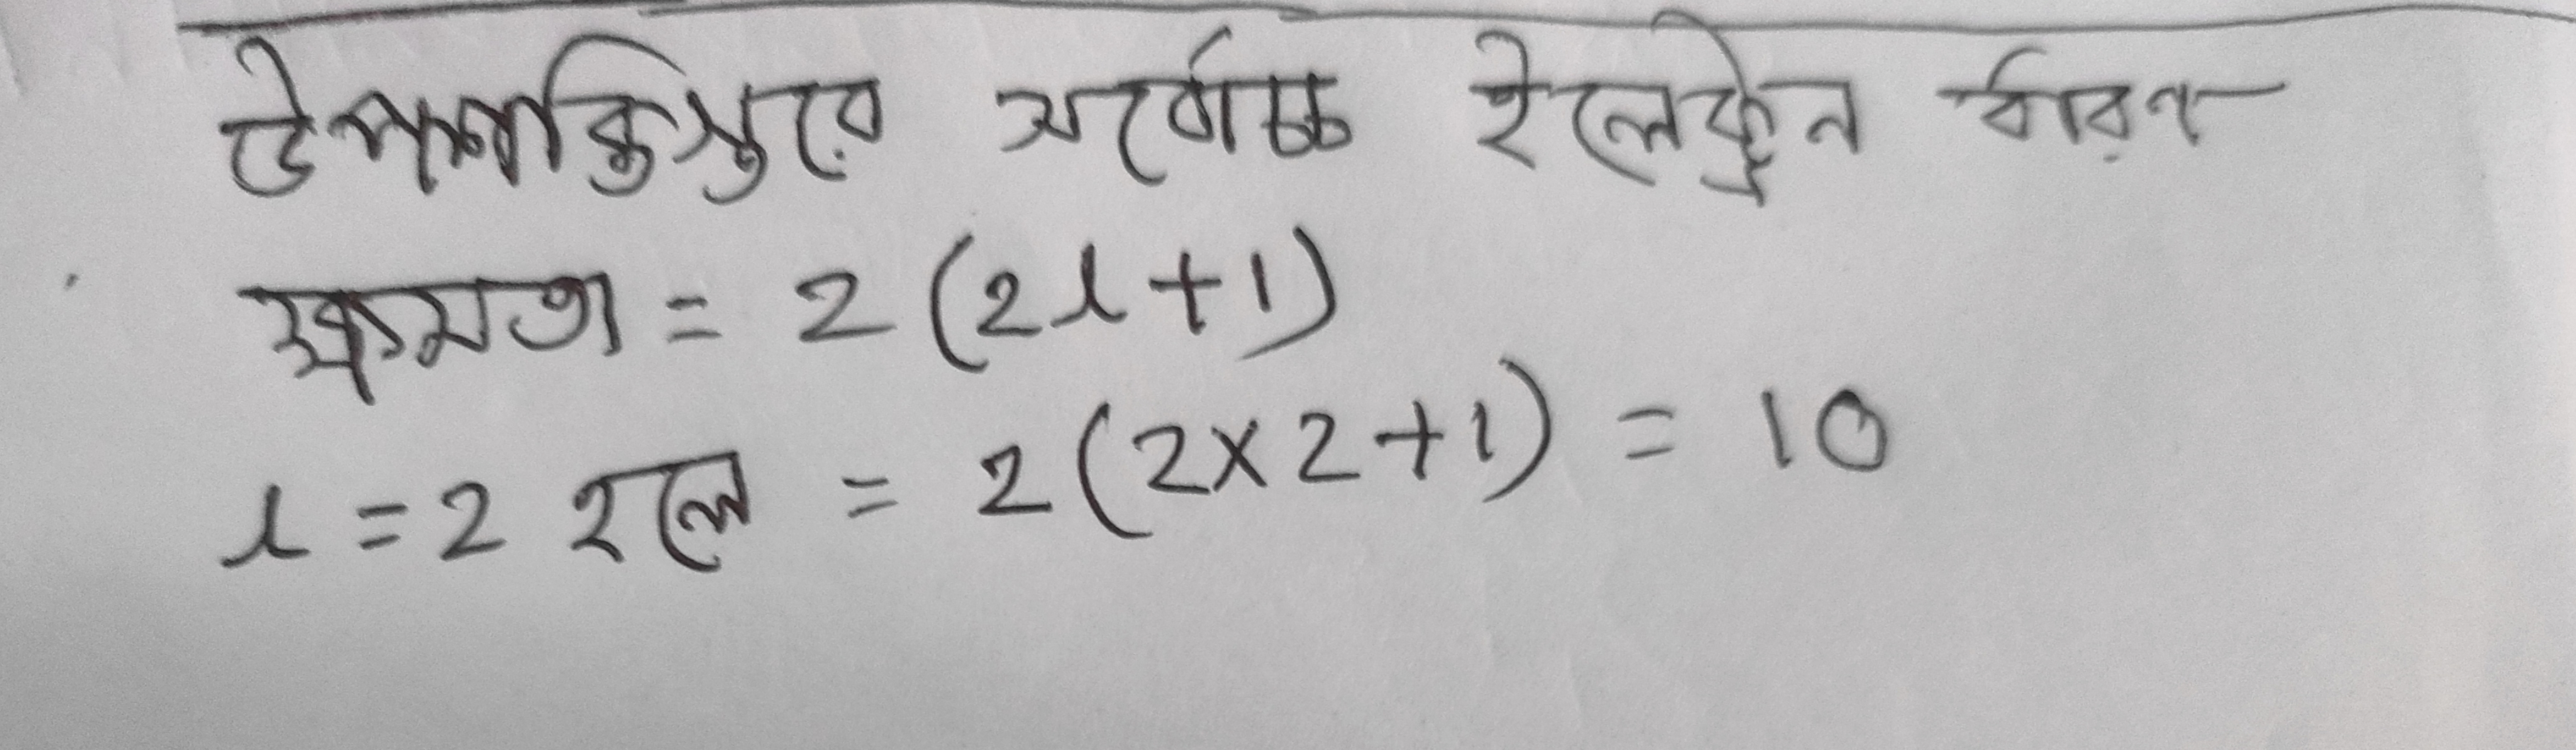 উপশক্তিস্তরে সর্বোচ্চ ইলেকট্রন ধারণ
ক্ষমতা = 2 (2l+1)
l = 2 হলে = 2 (2×2+1) = 10